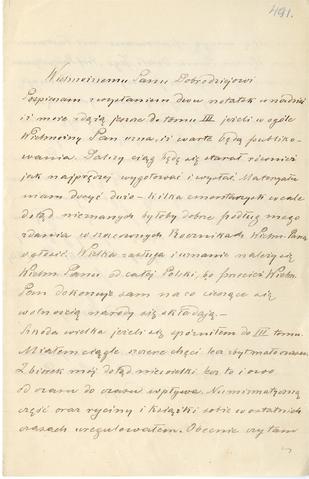 491.
Wielmożnemu Panu Dobrodziejowi
Pospieszam z wysłaniem dwu notatek w nadziei
iż może zdążą jeszcze do tomu III jeżeli w ogóle
Wielmożny Pan uzna, iż warte będą publiko-
wania. Dalszy ciąg będę się starać również
jak najprędzej wygotować i wysłać. Materyału
mam dosyć dużo – kilka cmentarzysk wcale
dotąd nieznanych byłoby dobrze podług mego
zdania w szacownych Rocznikach Wielm. Pana
ogłosić. Wielka zasługa i uznanie należy się
Wielm. Panu od całej Polski, bo przecież Wielm.
Pan dokonuje sam na co cieszące się
wolnością narody się składają. –
Szkoda wielka jeżeli się spóźniłem do III tomu.
Miałem ciągle szczere chęci, lecz zbyt mało czasu.
Zbiorek mój dotąd nieduży lecz to i owo
od czasu do czasu wpływa. Numizmatyczną
część oraz ryciny i książki sobie w ostatnich
czasach uregulowałem. Obecnie czytam